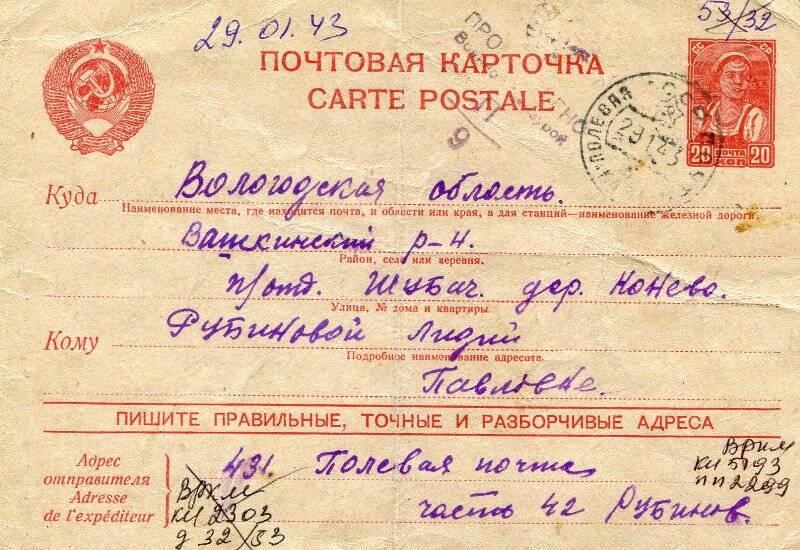 29.01.43
53/32
ПОЧТОВАЯ КАРТОЧКА
CARTE POSTALE
СС СР
20 ПОЧТА КОП 20
ПОЛЕВАЯ
29 1 43
11
9
Куда Вологодская область.
Наименование места, где находится почта, и области или края, а для станций—наименование железной дороги.
Вашкинский р-н.
Район, село или деревня.
п/отд. Шубач. дер. Конево.
Улица, № дома и квартиры.
Кому Рубиновой Лидии
Подробное наименование адресата.
Павловне.
ПИШИТЕ ПРАВИЛЬНЫЕ, ТОЧНЫЕ И РАЗБОРЧИВЫЕ АДРЕСА
Адрес отправителя
Adresse de l'expéditeur
431. Полевая почта
часть 42 Рубинов.
ВРКМ
КП 2303
д 32/33
ВРКМ
КП 5193
НП 2299